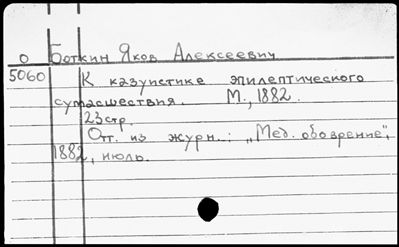 О Боткин Яков Алексеевич
5060 К казуистике эпилептического
сумасшествия. М., 1882.
23 стр.
Отт. из журн.: „Мед. обозрение",
1882, июль.